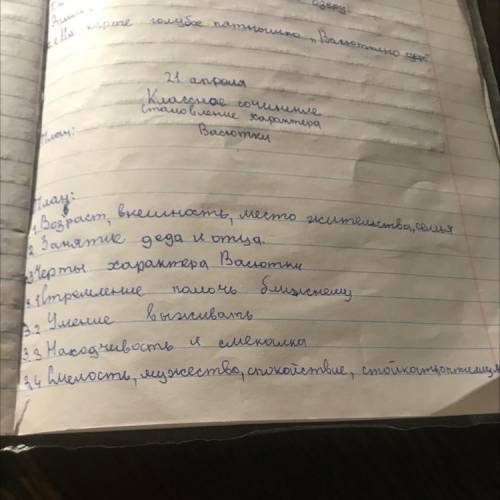 озеру.
На карте голубое пятнышко „Васюткино
21 апреля
Классное сочинение
становление характера
Васютки
План:
План:
1. Возраст, внешность, место жительства, семья
2. Занятие деда и отца.
3 Черты характера Васютки
3.1 Стремление помочь ближнему
3.2 Умение выживать
3.3 Находчивость и смекалка
3.4 Смелость, мужество, спокойствие,